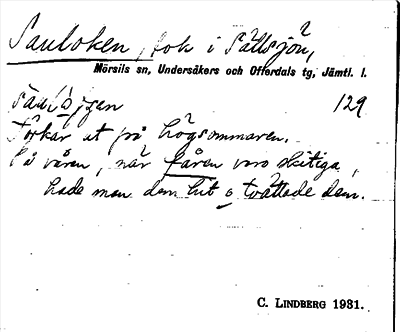 Sauloken, lok i Sällsjön,
Mörsils sn, Undersåkers och Offerdals tg, Jämtl. l.
129
Torkar ut på högsommaren.
På våren, när fåren voro skitiga,
hade man dem hit o tvättade dem.
C. LINDBERG 1931.